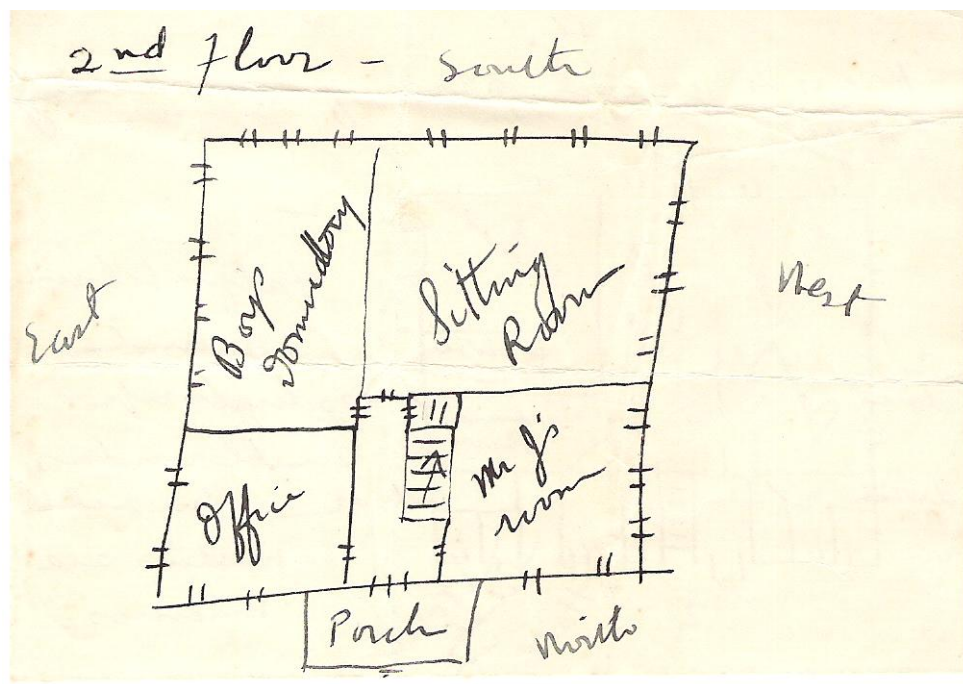 2nd Floor - South
East
Boys
Dormitory
Sitting
Room
West
Office
Mr J's
room
Porch
North